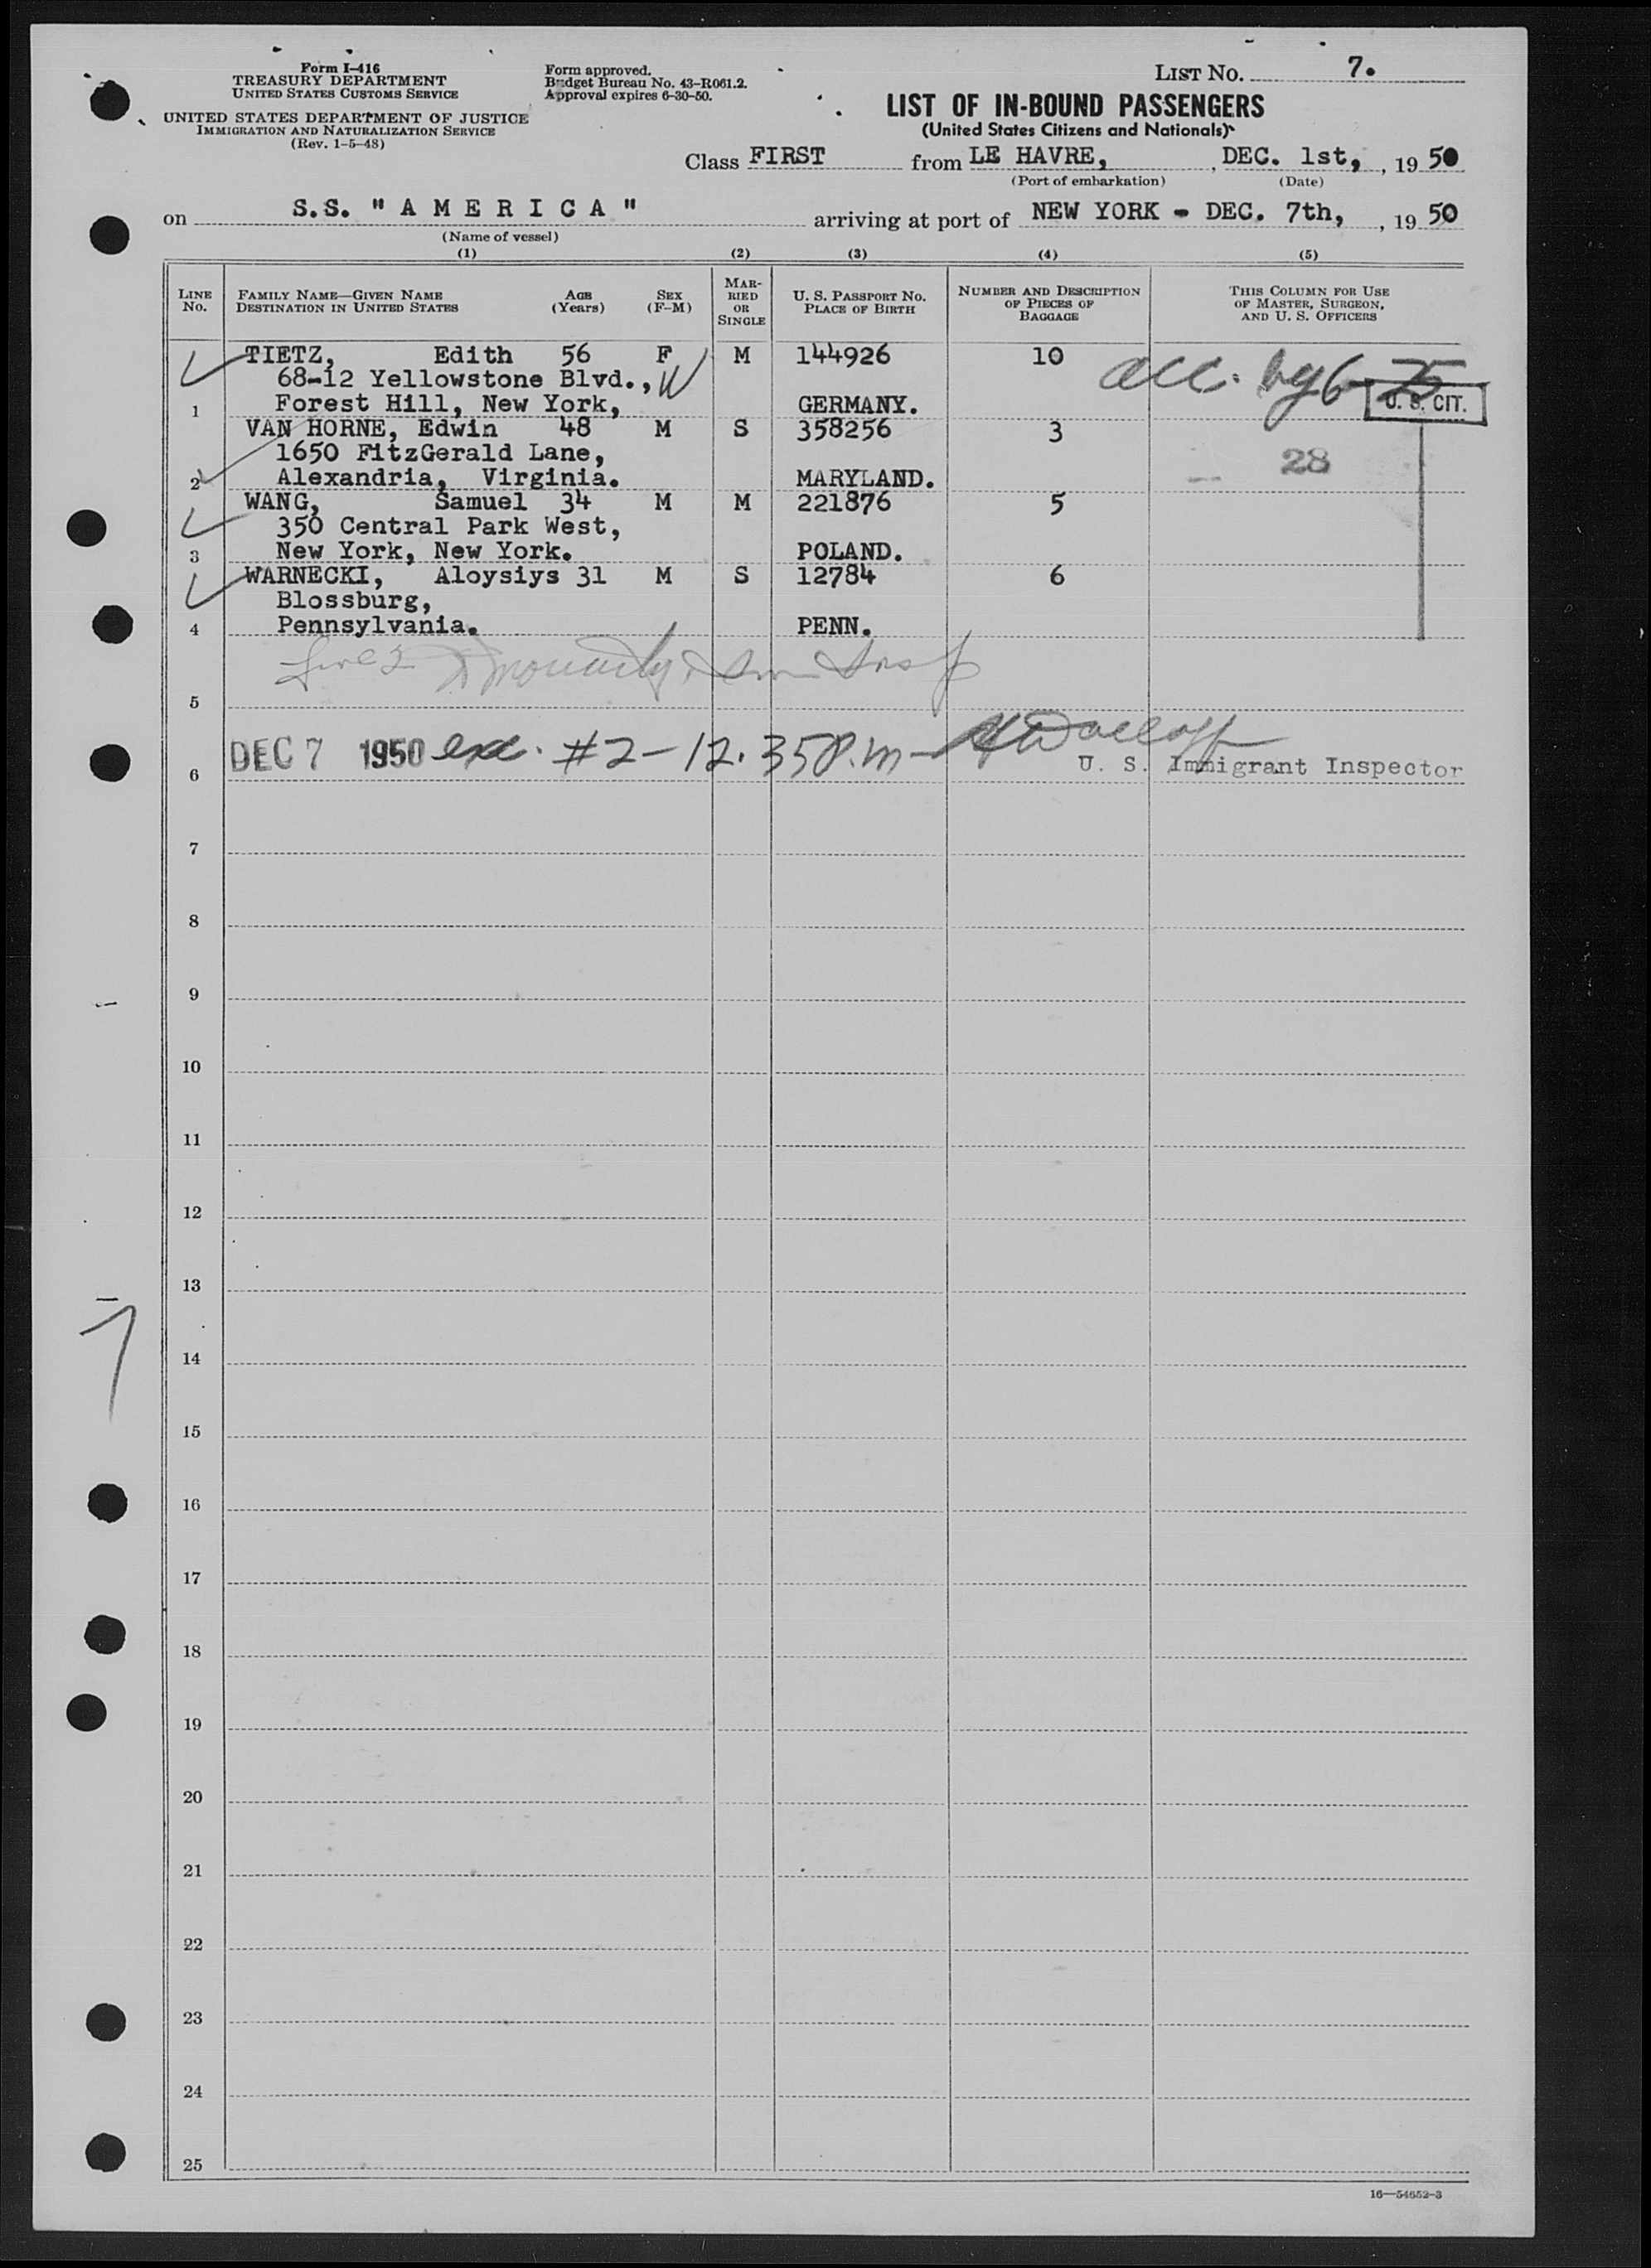 Form I-416
TREASURY DEPARTMENT
UNITED STATES CUSTOMS SERVICE
UNITED STATES DEPARTMENT OF JUSTICE
IMMIGRATION AND NATURALIZATION SERVICE
(Rev. 1-5-48)
Form approved.
Budget Bureau No. 43-R061.2.
Approval expires 6-30-50.
LIST NO. 7.
LIST OF IN-BOUND PASSENGERS
(United States Citizens and Nationals)
Class FIRST from LE HAVRE, DEC. 1st, , 19 50
(Port of embarkation) (Date)
on S.S. " A M E R I C A " arriving at port of NEW YORK - DEC. 7th, , 19 50
(Name of vessel)
(1) (2) (3) (4) (5)
LINE NO. FAMILY NAME—GIVEN NAME DESTINATION IN UNITED STATES AGE (Years) SEX (F-M) MARRIED OR SINGLE U. S. PASSPORT NO. PLACE OF BIRTH NUMBER AND DESCRIPTION OF PIECES OF BAGGAGE THIS COLUMN FOR USE OF MASTER, SURGEON, AND U. S. OFFICERS
TIETZ, Edith 56 F M 144926 10 acc. by 6-75
68-12 Yellowstone Blvd., W
1 Forest Hill, New York, GERMANY. U. S. CIT.
VAN HORNE, Edwin 48 M S 358256 3
1650 FitzGerald Lane, 28
2 Alexandria, Virginia. MARYLAND.
WANG, Samuel 34 M M 221876 5
350 Central Park West,
3 New York, New York. POLAND.
WARNECKI, Aloysiys 31 M S 12784 6
Blossburg,
4 Pennsylvania. PENN.
5
6 DEC 7 1950 exc. #2-12.35 P.m-
U. S. Immigrant Inspector
7
8
9
10
11
12
13
14
15
16
17
18
19
20
21
22
23
24
25
16—54652-3